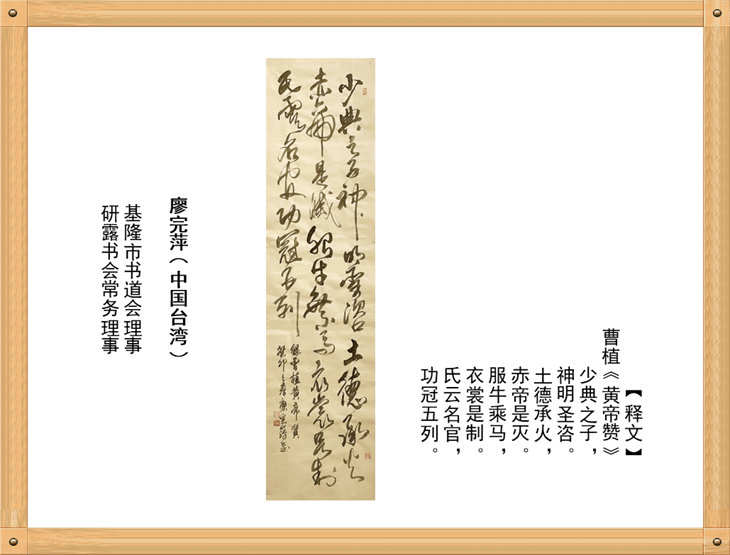 【释文】
曹植《黄帝赞》
少典之子，
神明圣咨。
土德承火，
赤帝是灭。
服牛乘马，
衣裳是制。
氏云名官，
功冠五列。
少典之子神明土德承火
赤帝是滅服牛乘馬衣裳是制
氏雲名官功冠五列
曹植黃帝贊
癸卯之春廖完萍
廖完萍（中国台湾）
基隆市书道会理事
研露书会常务理事